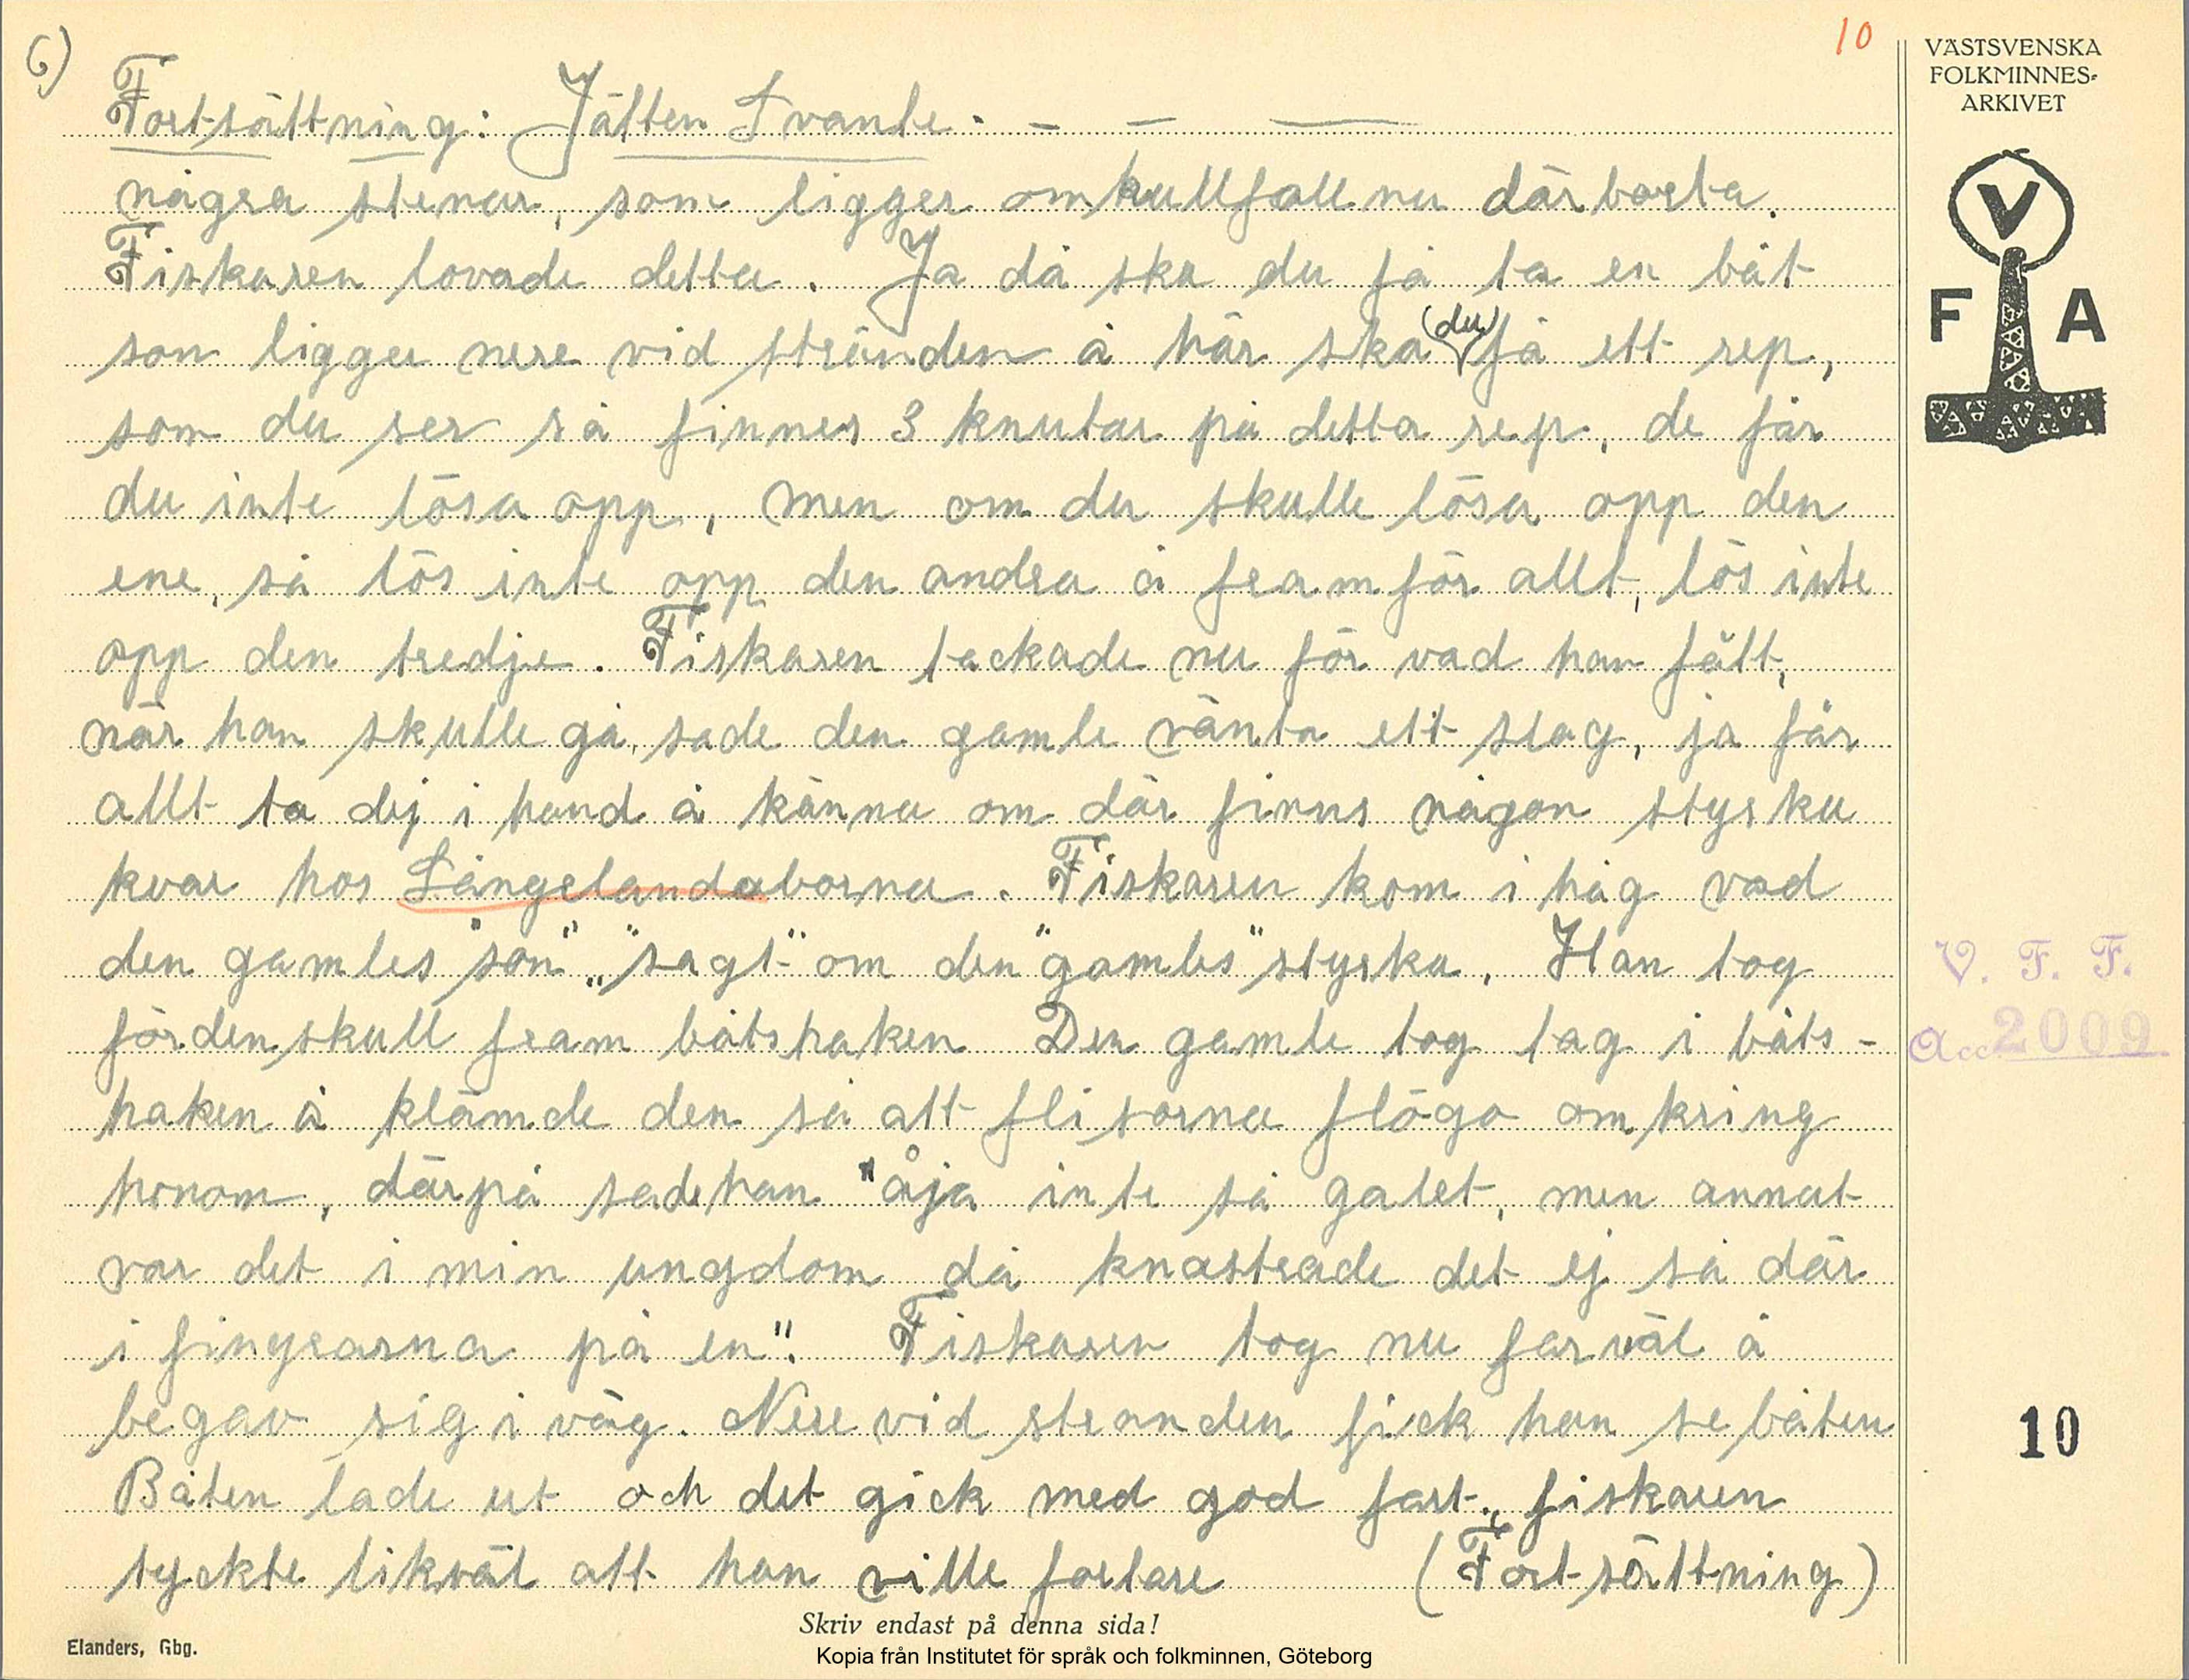 6)
10
Fortsättning: Jätten Svante. — — —
några stenar, som ligger omkullfallnu där borta.
Fiskaren lovade detta. Ja då ska du få ta en båt
som ligger nere vid stranden å här ska (du) få ett rep,
som du ser så finnes 3 knutar på detta rep, de får
du inte lösa opp, men om du skulle lösa opp den
ene, så lös inte opp den andra å framför allt, lös inte
opp den tredje. Fiskaren tackade nu för vad han fått,
när han skulle gå, sade den gamle vänta ett slag, ja får
allt ta dej i hand å känna om där finns någon styrka
kvar hos Långelandaborna. Fiskaren kom i håg vad
den gamles "son" "sagt" om den "gamles" styrka. Han tog
förden skull fram båtshaken Den gamle tog tag i båts-
haken å klämde den så att flisorna flögo omkring
honom, därpå sade han "åja inte så galet, men annat
var det i min ungdom då knastrade det ej så där
i fingrarna på en". Fiskaren tog nu farväl å
begav sig i väg. Nere vid stranden fick han se båten
Båten lade ut och det gick med god fart, fiskaren
tyckte likväl att han ville fortare (Fortsättning)
Skriv endast på denna sida!
Elanders, Gbg.
Kopia från Institutet för språk och folkminnen, Göteborg
VÄSTSVENSKA
FOLKMINNES-
ARKIVET
V
F A
V. F. F.
Acc 2009
10